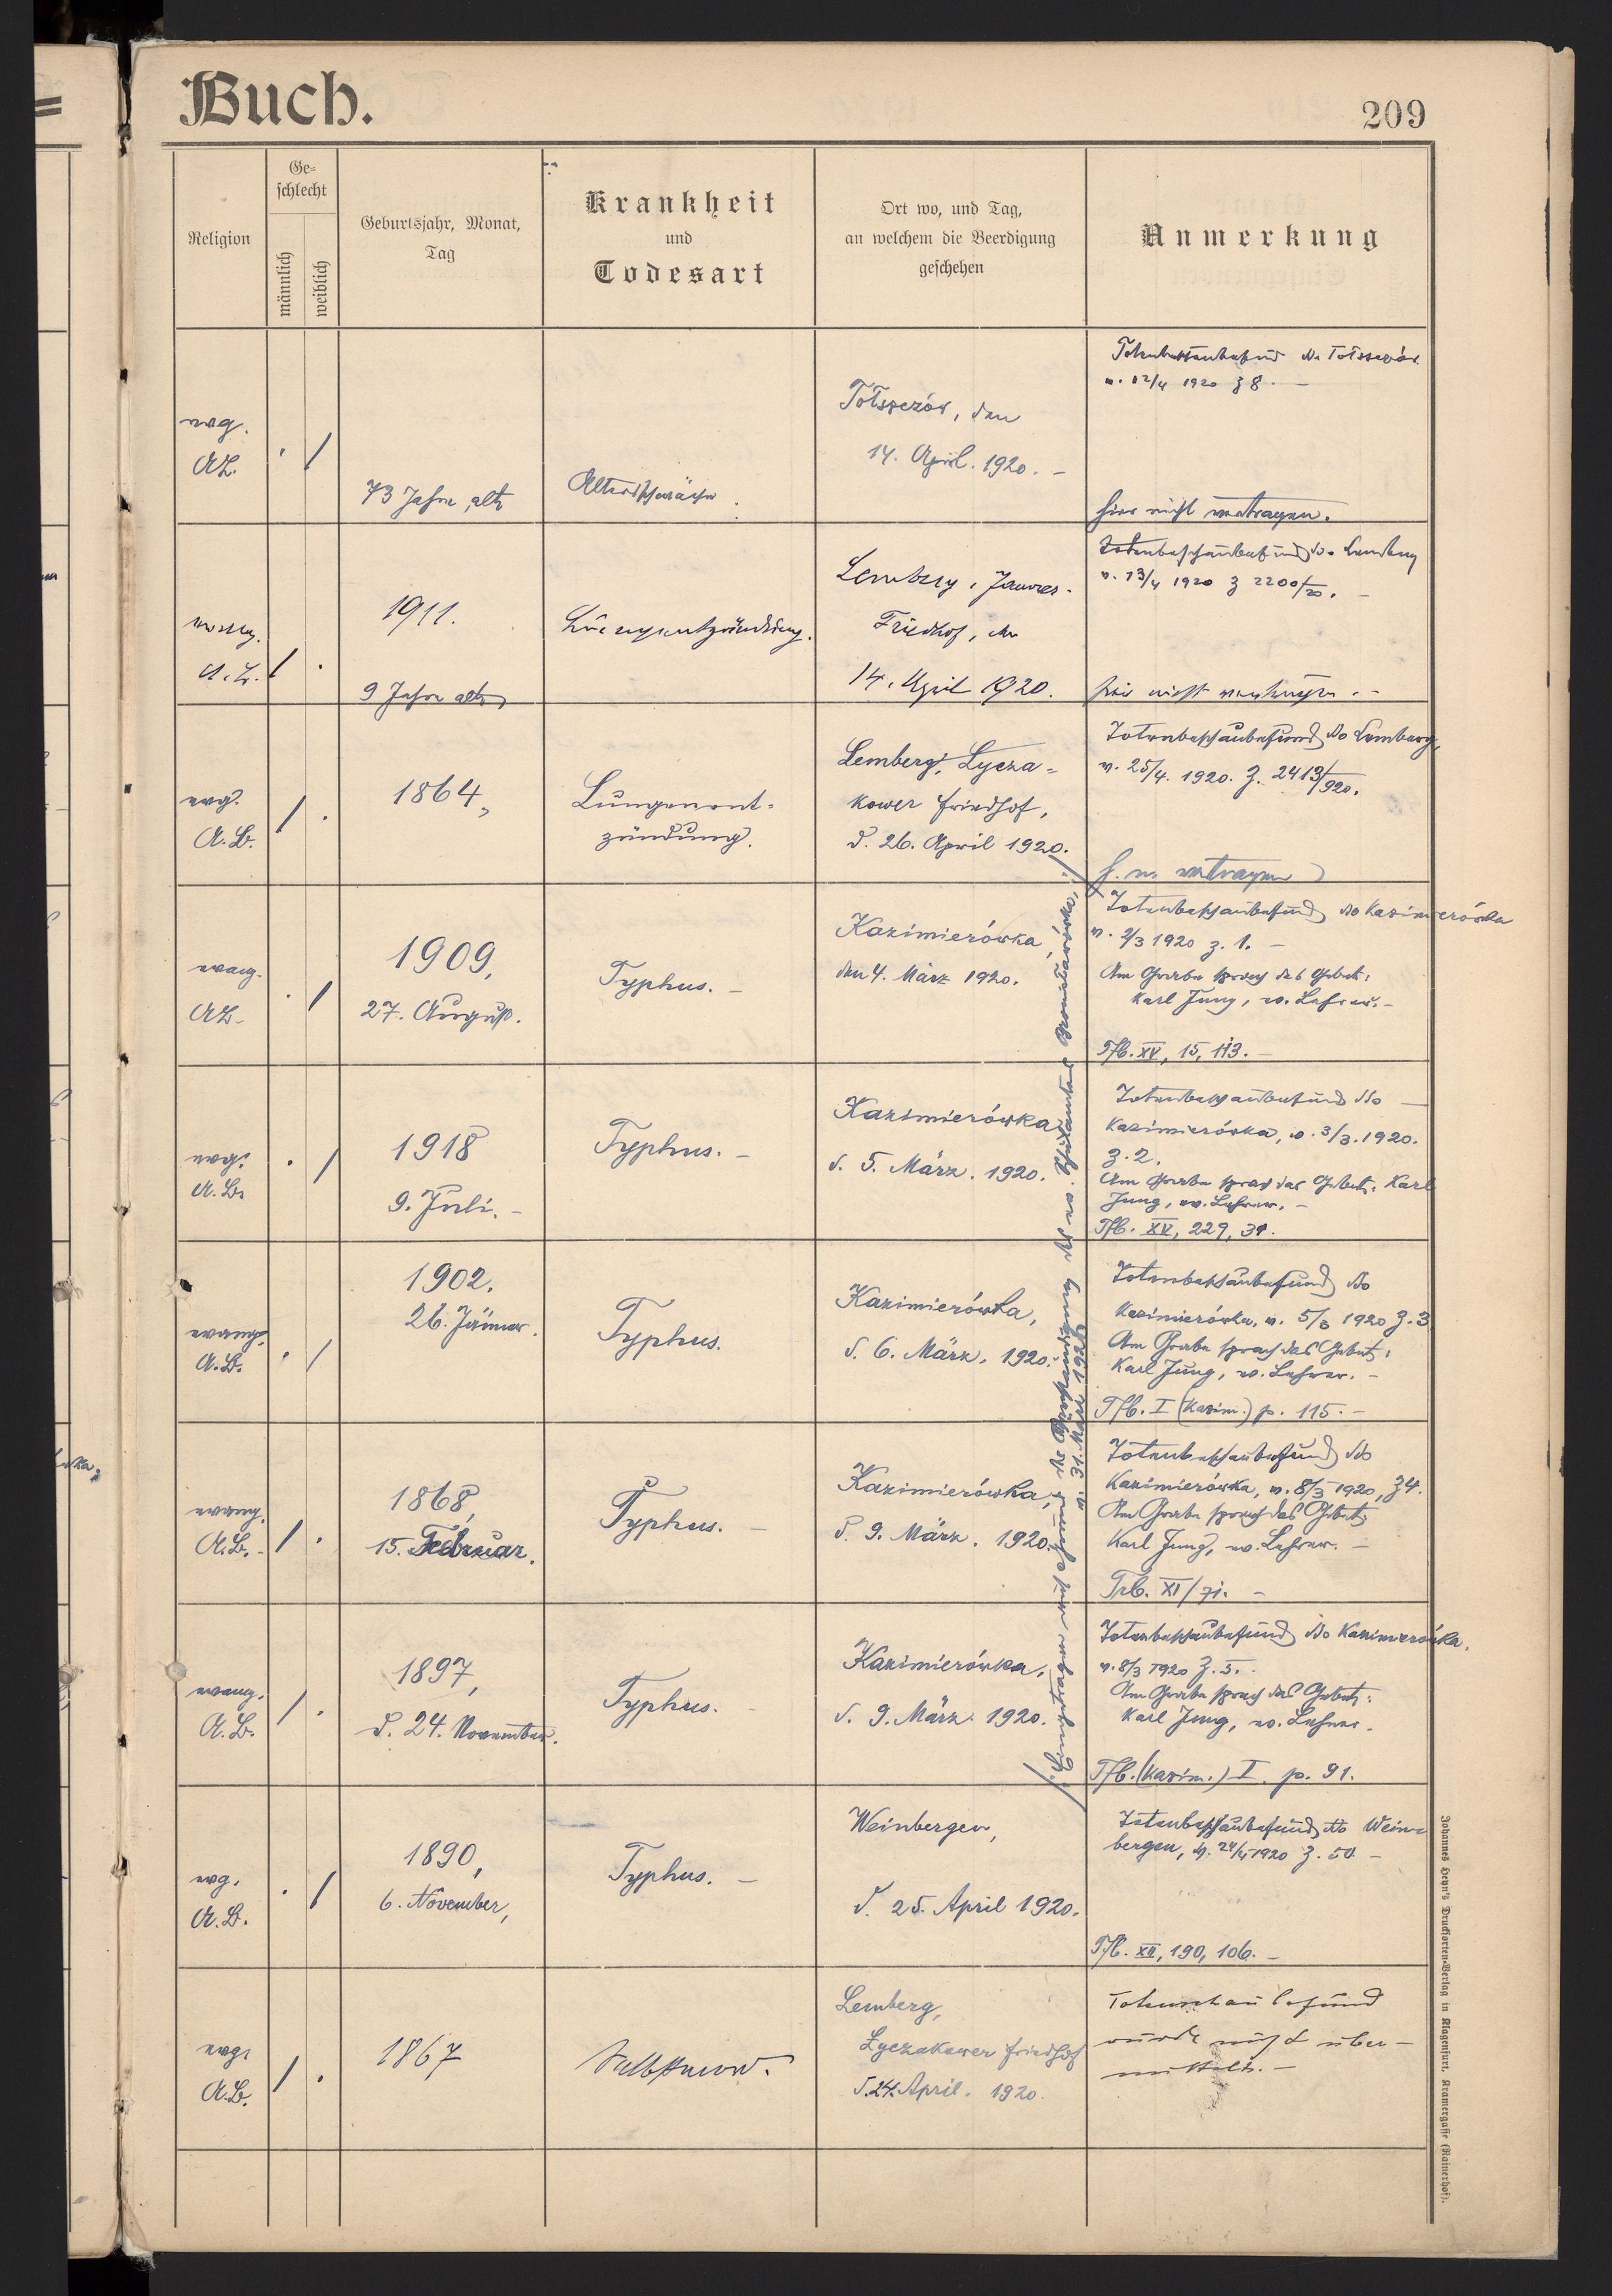 Buch.
209
Religion
Ge-
schlecht
männlich
weiblich
Geburtsjahr, Monat,
Tag
Krankheit
und
Todesart
Ort wo, und Tag,
an welchem die Beerdigung
geschehen
Anmerkung
evg.
A.B.
73 Jahre alt
Altersschwäche.
Tołszczów, den
14. April. 1920. -
Totenbeschaubefund do Tołszczów
v. 12/4 1920 z 8. -
hier nicht vertragen.
evang.
A.B.
1911.
9 Jahre alt
Lungenentzündung.
Lemberg, Janower
Friedhof, den
14. April 1920.
Totenbeschaubefund do Lemberg
v. 13/4 1920 z 2200/20. -
hier nicht vertragen. -
evg.
A.B.
1864,
Lungenent-
zündung.
Lemberg, Lycza-
kower Friedhof,
d. 26. April 1920.
Totenbeschaubefund do Lemberg
v. 25/4. 1920. Z. 2413/920.
h. n. vertragen
evang.
A.B.
1909,
27. August.
Typhus. -
Kazimierówka,
den 4. März 1920.
Totenbeschaubefund do Kazimierówka
v. 2/3 1920 z. 1. -
Am Grabe sprach das Gebet:
Karl Jung, ev. Lehrer. -
Tfb. XV, 15, 113. -
evg.
A.B.
1918
9. Juli. -
Typhus. -
Kazimierówka
d. 5. März. 1920.
Totenbeschaubefund do
Kazimierówka, v. 3/3. 1920.
z. 2.
Am Grabe sprach das Gebet: Karl
Jung, ev. Lehrer. -
Tfb. XV, 229, 31.
evang.
A.B.
1902.
26. Jänner.
Typhus.
Kazimierówka,
d. 6. März. 1920.
Totenbeschaubefund do
Kazimierówka, v. 5/3 1920 z. 3
Am Grabe sprach das Gebet:
Karl Jung, ev. Lehrer. -
Tfb. I (Kazim.) p. 115. -
evang.
A.B. -
1868,
15. Februar.
Typhus. -
Kazimierówka,
d. 9. März. 1920.
Totenbeschaubefund do
Kazimierówka, v. 8/3 1920, z 4.
Am Grabe sprach das Gebet:
Karl Jung, ev. Lehrer. -
Trb. XI/71. -
evang.
A.B.
1897,
d. 24. November.
Typhus. -
Kazimierówka,
d. 9. März 1920.
Totenbeschaubefund do Kazimierówka,
v. 8/3 1920 z. 5. -
Am Grabe sprach das Gebet:
Karl Jung, ev. Lehrer.
Tfb. (Kazim.) I. p. 91.
/: Eingetragen auf Grund der Verständigung des ev. Pfarramtes :/
v. 31. März 1920
evg.
A.B.
1890,
6. November,
Typhus. -
Weinbergen,
d. 25. April 1920.
Totenbeschaubefund do Wein-
bergen, v. 24/4 1920 z. 50 -
Tfb. XII, 190, 106. -
evg.
A.B.
1867
Selbstmord.
Lemberg,
Łyczakower Friedhof
d. 24. April. 1920.
Totenschaubefund
wurde nicht über-
mittelt. -
Johannes Heyn's Drucksorten-Verlag in Klagenfurt, Kramergasse (Rainerhof).